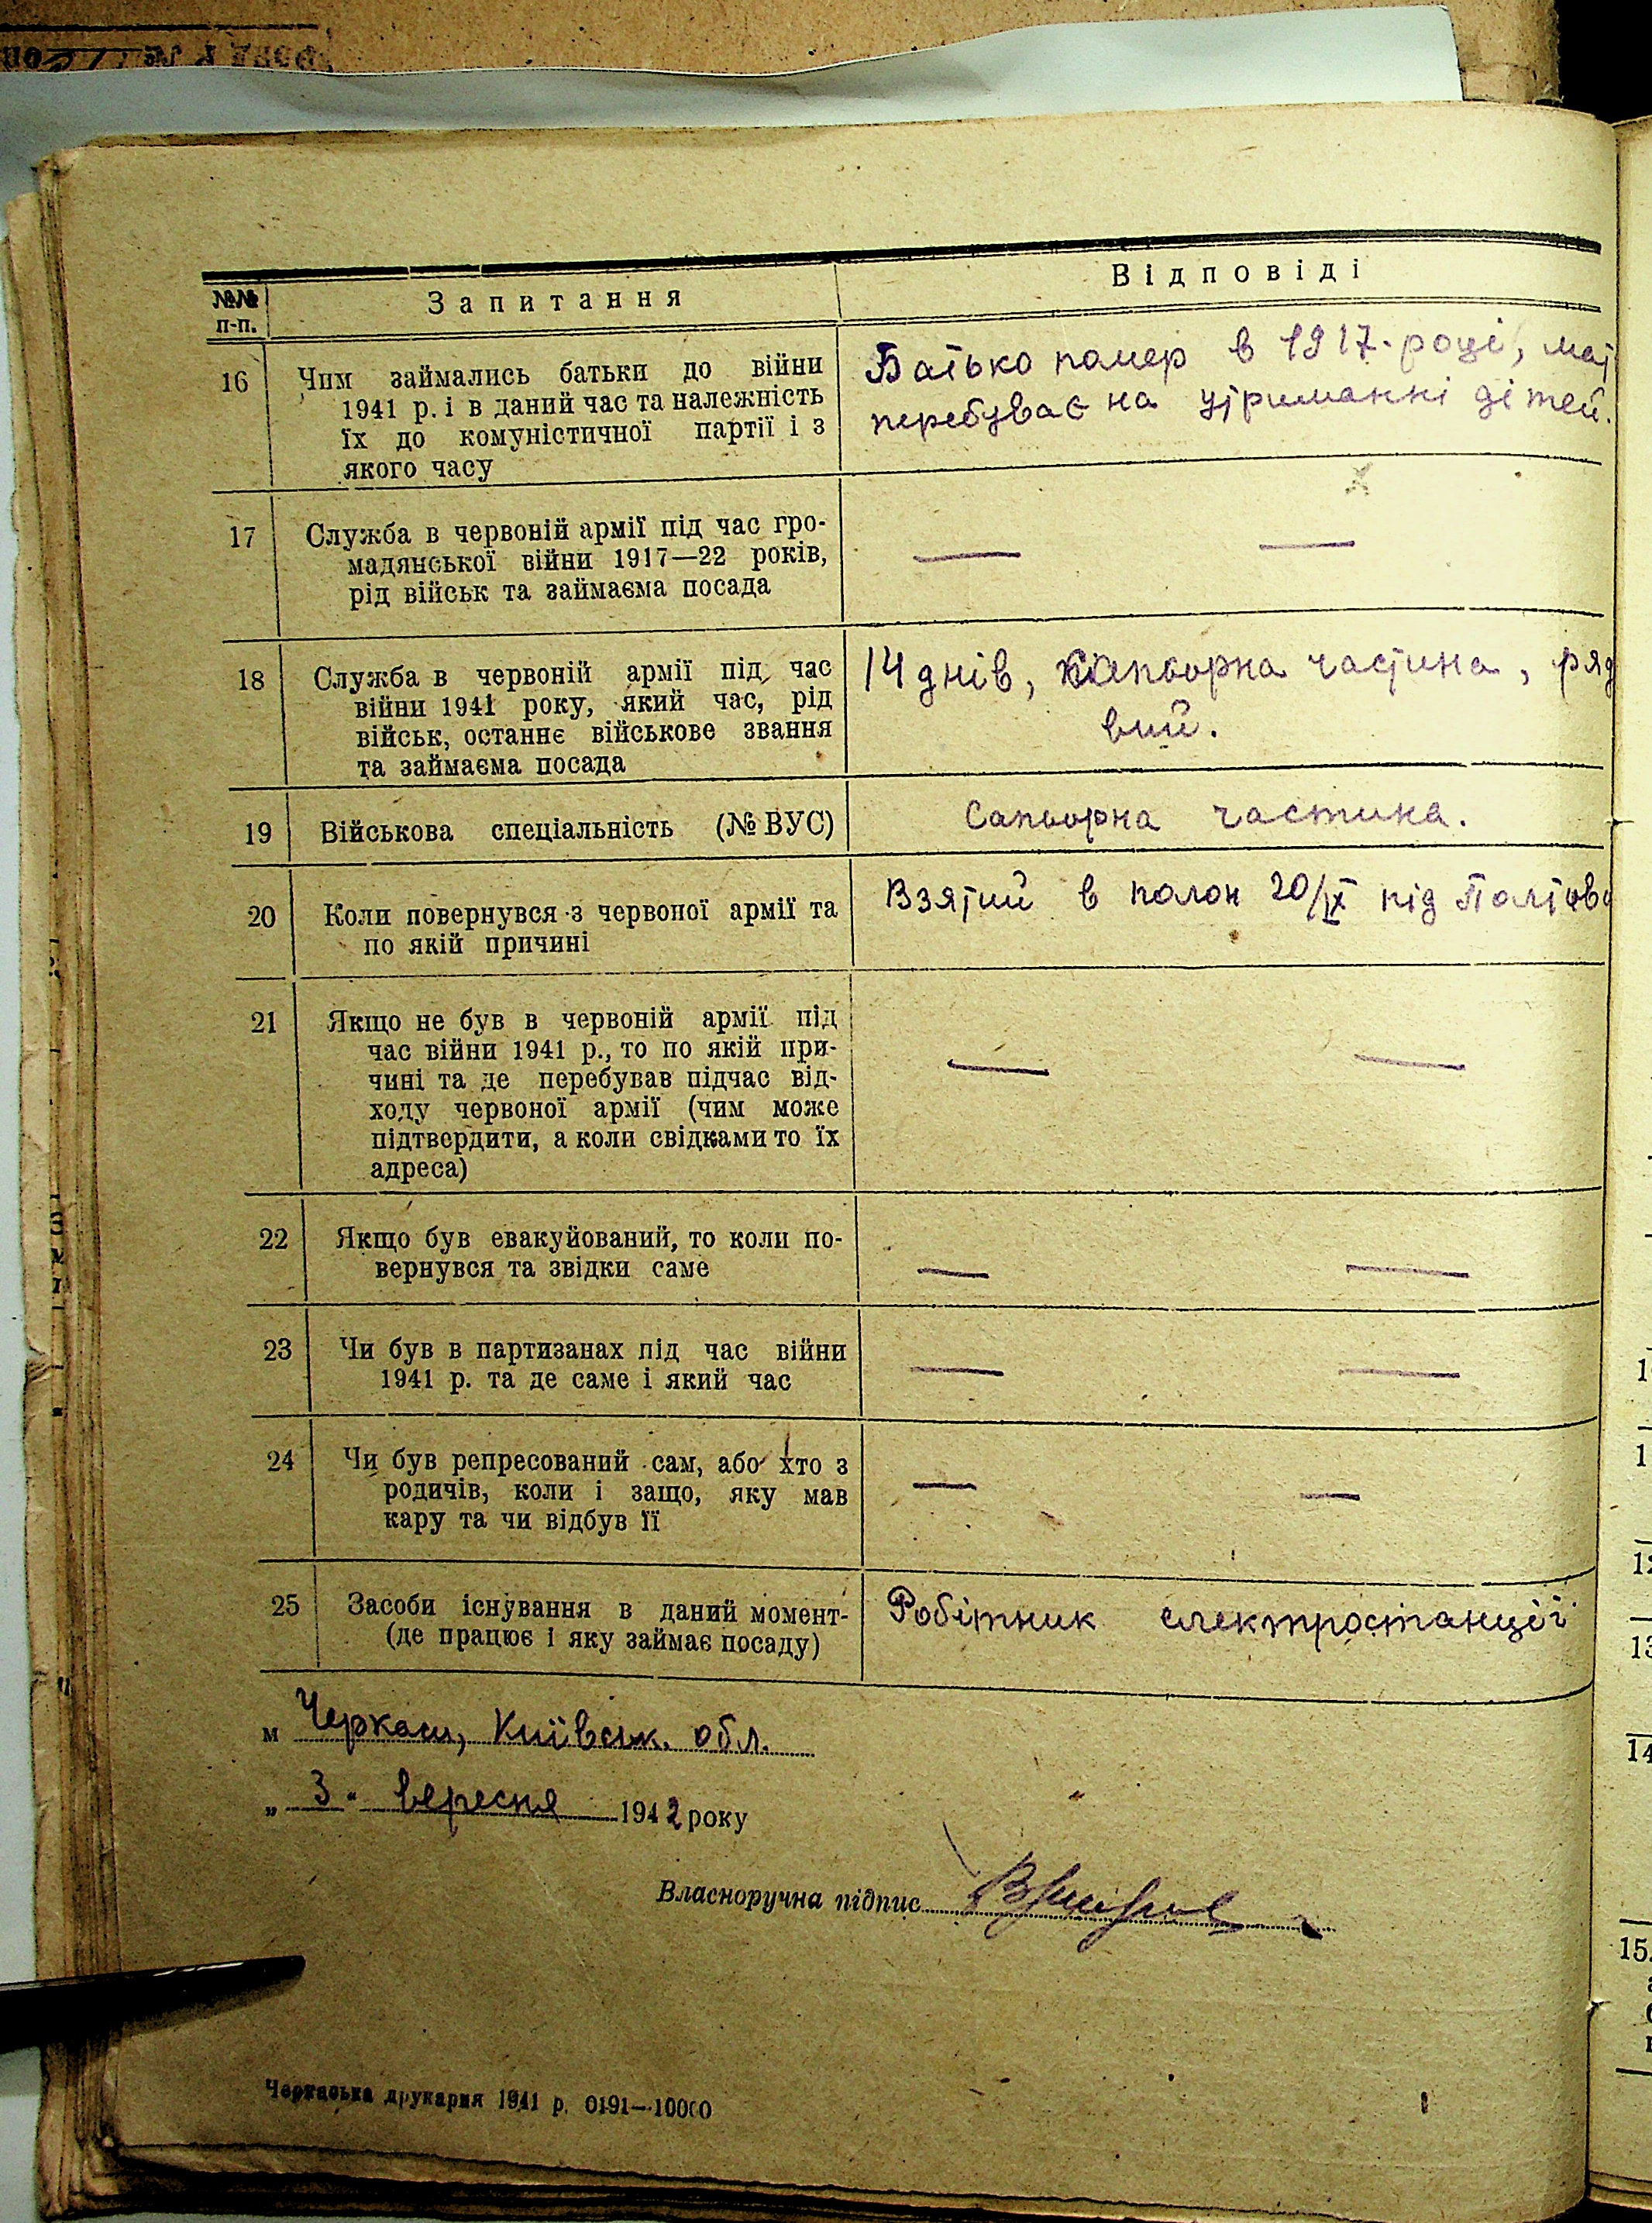 №№ п-п.
Запитання
Відповіді
16
Чим займались батьки до війни
1941 р. і в даний час та належність
їх до комуністичної партії і з
якого часу
Батько помер в 1917. році, мат
перебуває на утриманні дітей.
17
Служба в червоній армії під час гро-
мадянської війни 1917—22 років,
рід військ та займаєма посада
— —
18
Служба в червоній армії під час
війни 1941 року, який час, рід
військ, останнє військове звання
та займаєма посада
14 днів, сапьорна частина, ряд
вий.
19
Військова спеціальність (№ ВУС)
Сапьорна частина.
20
Коли повернувся з червоної армії та
по якій причині
Взятий в полон 20/IX під Полтаво
21
Якщо не був в червоній армії під
час війни 1941 р., то по якій при-
чині та де перебував підчас від-
ходу червоної армії (чим може
підтвердити, а коли свідками то їх
адреса)
— —
22
Якщо був евакуйований, то коли по-
вернувся та звідки саме
— —
23
Чи був в партизанах під час війни
1941 р. та де саме і який час
— —
24
Чи був репресований сам, або хто з
родичів, коли і защо, яку мав
кару та чи відбув її
— —
25
Засоби існування в даний момент-
(де працює і яку займає посаду)
Робітник електростанції
м Черкаси, Київськ. обл.
„ 3 " вересня 1942 року
Власноручна підпис
Черкаська друкарня 1941 р. 0191—10000
1
12
13
14
15.